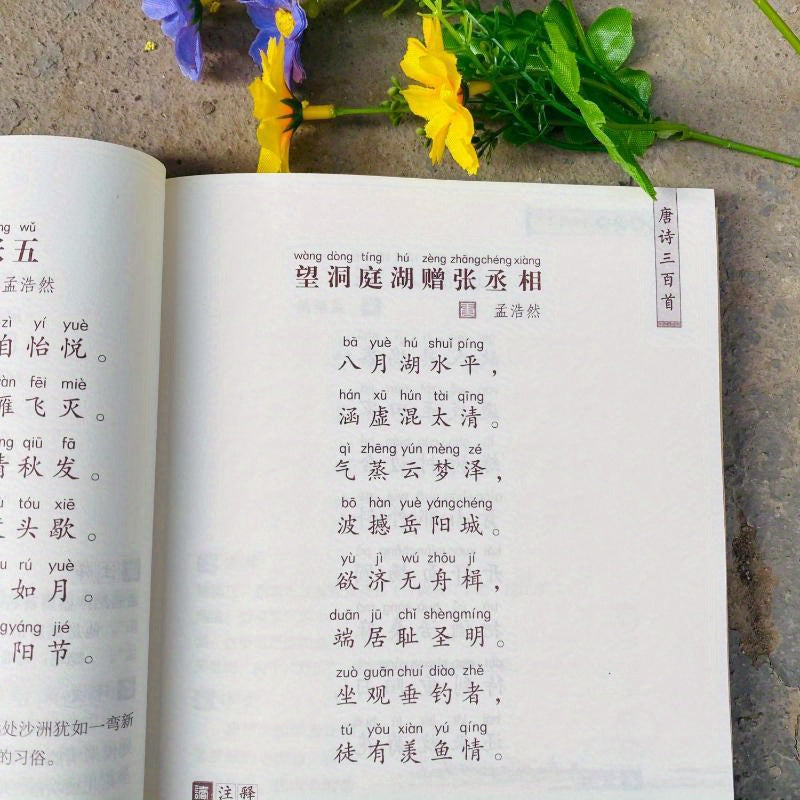 wǔ
五
孟浩然
zì yí yuè
自怡悦。
fēi miè
雁飞灭。
qiū fā
清秋发。
tóu xiē
头歇。
rú yuè
如月。
yáng jié
阳节。
处沙洲犹如一弯新
的习俗。
唐诗三百首
wàng dòng tíng hú zèng zhāng chéng xiàng
望洞庭湖赠张丞相
孟浩然
bā yuè hú shuǐ píng
八月湖水平，
hán xū hún tài qīng
涵虚混太清。
qì zhēng yún mèng zé
气蒸云梦泽，
bō hàn yuè yáng chéng
波撼岳阳城。
yù jì wú zhōu jí
欲济无舟楫，
duān jū chǐ shèng míng
端居耻圣明。
zuò guān chuí diào zhě
坐观垂钓者，
tú yǒu xiàn yú qíng
徒有羡鱼情。
注释